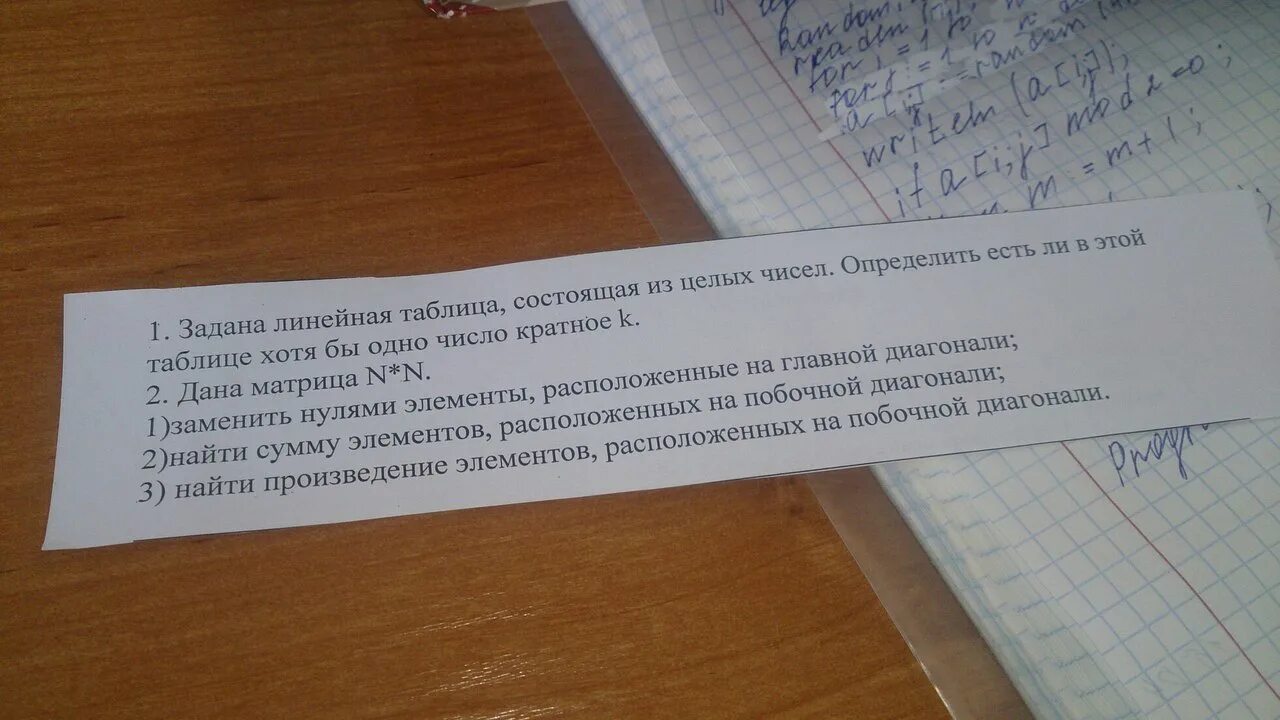 random
readln (n);
for i = 1 to n
for j = 1 to n
a [i,j] = random
writeln (a[i,j]);
if a[i;j] mod 2=0;
m = m+1;
1. Задана линейная таблица, состоящая из целых чисел. Определить есть ли в этой
таблице хотя бы одно число кратное k.
2. Дана матрица N*N.
1)заменить нулями элементы, расположенные на главной диагонали;
2)найти сумму элементов, расположенных на побочной диагонали;
3) найти произведение элементов, расположенных на побочной диагонали.
Progr